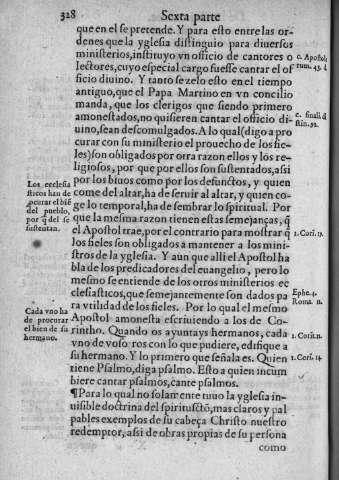 328
Sexta parte
que en el se pretende. Y para esto entre las or-
denes que la yglesia distinguio para diuersos
ministerios, instituyo vn officio de cantores o
lectores, cuyo especial cargo fuesse cantar el of
ficio diuino. Y tanto se zelo esto en el tiempo
antiguo, que el Papa Martino en vn concilio
manda, que los clerigos que siendo primero
amonestados, no quisieren cantar el officio di-
uino, sean descomulgados. A lo qual (digo a pro
curar con su ministerio el prouecho de los fie-
les) son obligados por otra razon ellos y los re-
ligiosos, por que por ellos son sustentados, assi
por los biuos como por los defunctos, y quien
come del altar, ha de seruir al altar, y quien co-
ge lo temporal, ha de sembrar lo spiritual. Por
que la mesma razon tienen estas semejanças, q̃
el Apostol trae, por el contrario para mostrar q̃
los fieles son obligados a mantener a los mini-
stros de la yglesia. Y aun que alli el Apostol ha
bla de los predicadores del euangelio, pero lo
mesmo se entiende de los otros ministerios ec
clesiasticos, que semejantemente son dados pa
ra vtilidad de los fieles. Por lo qual el mesmo
Apostol amonesta escriuiendo a los de Co-
rintho. Quando os ayuntays hermanos, cada
vno de vosotros con lo que pudiere, edifique a
su hermano. Y lo primero que señala es. Quien
tiene Psalmo, diga psalmo. Esto a quien incum
biere cantar psalmos, cante psalmos.
¶Para lo qual no solamente tuuo la yglesia in-
uisible doctrina del spiritu sctõ, mas claros y pal
pables exemplos de su cabeça Christo nuestro
redemptor, assi de obras propias de su persona
como
c. Apostolo
rum. 43.
c. finali d̃
stin. 92.
Los ecclesia
sticos han de
procurar el biẽ
del pueblo,
por q̃ del se
sustentan.
1. Cori. 9.
Ephe. 4.
Roma. 12.
Cada vno ha
de procurar
el bien de su
hermano.
1. Cori. 14